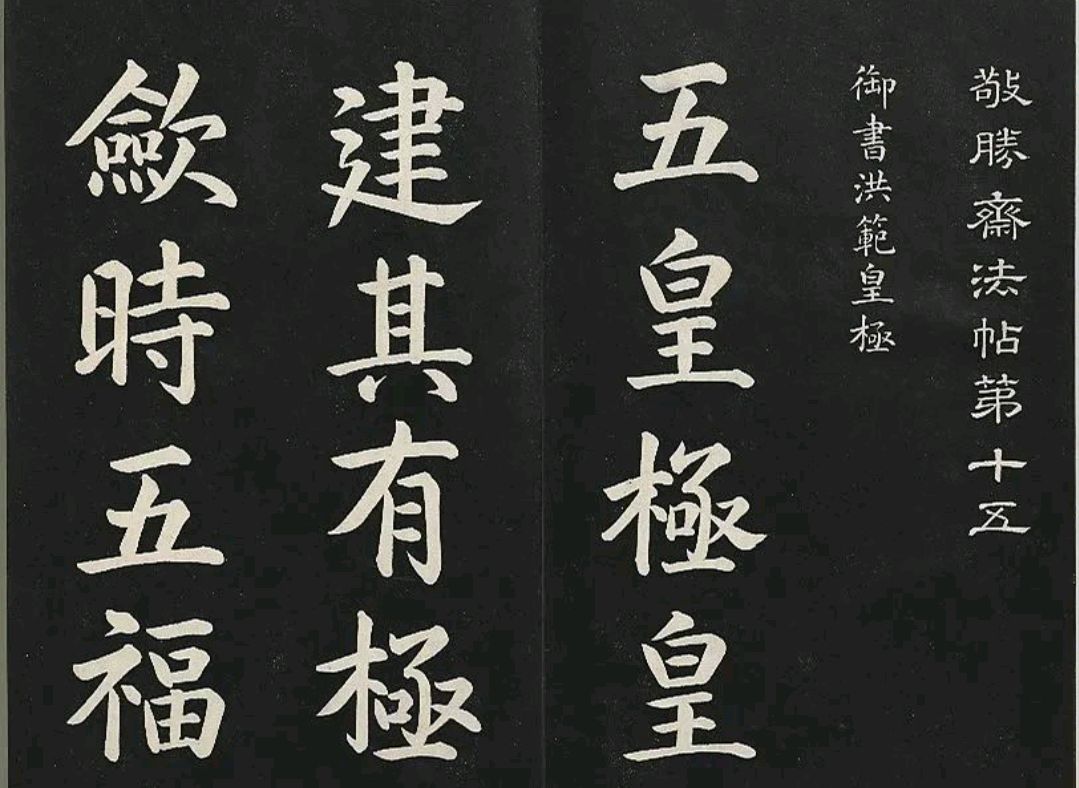 敬勝齋法帖第十五
御書洪範皇極
五皇極皇
建其有極
歛時五福